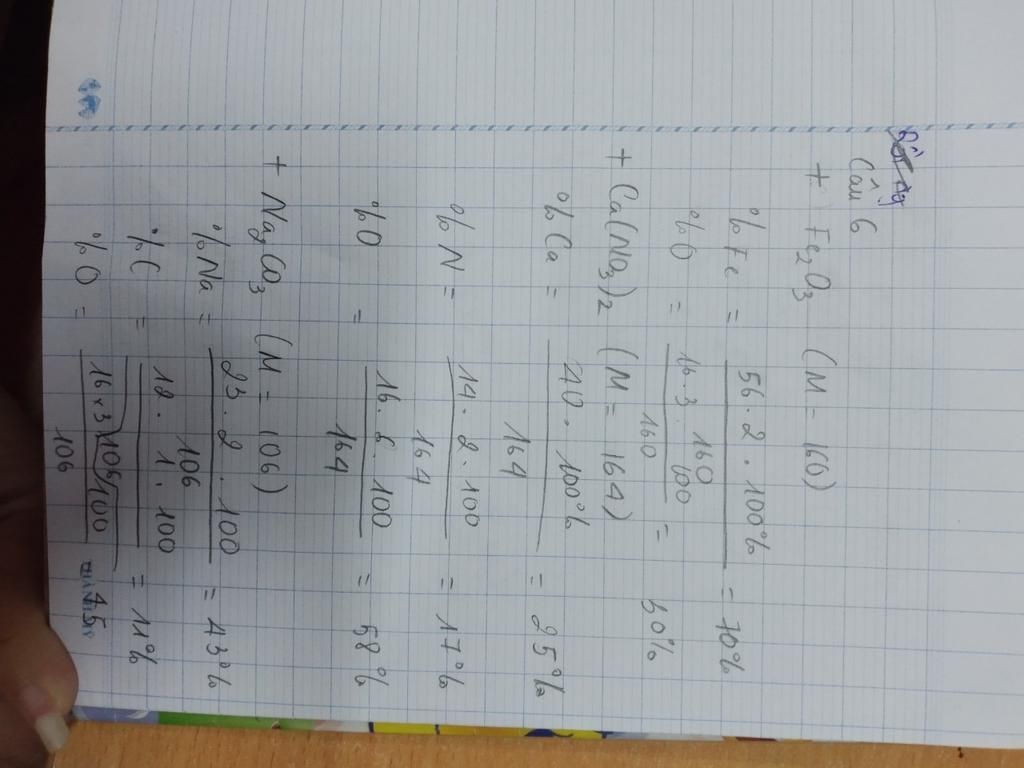 Câu 6
+ Fe2O3 (M = 160)
%Fe = 56 . 2 . 100% / 160 = 70%
%O = 16 . 3 . 100 / 160 = 60%
+ Ca(NO3)2 (M = 164)
%Ca = 40 . 100% / 164 = 25%
%N = 14 . 2 . 100 / 164 = 17%
%O = 16 . 6 . 100 / 164 = 58%
+ Na2CO3 (M = 106)
%Na = 23 . 2 . 100 / 106 = 43%
%C = 12 . 1 . 100 = 11%
%O = 16 x 3 / 100 / 106 45